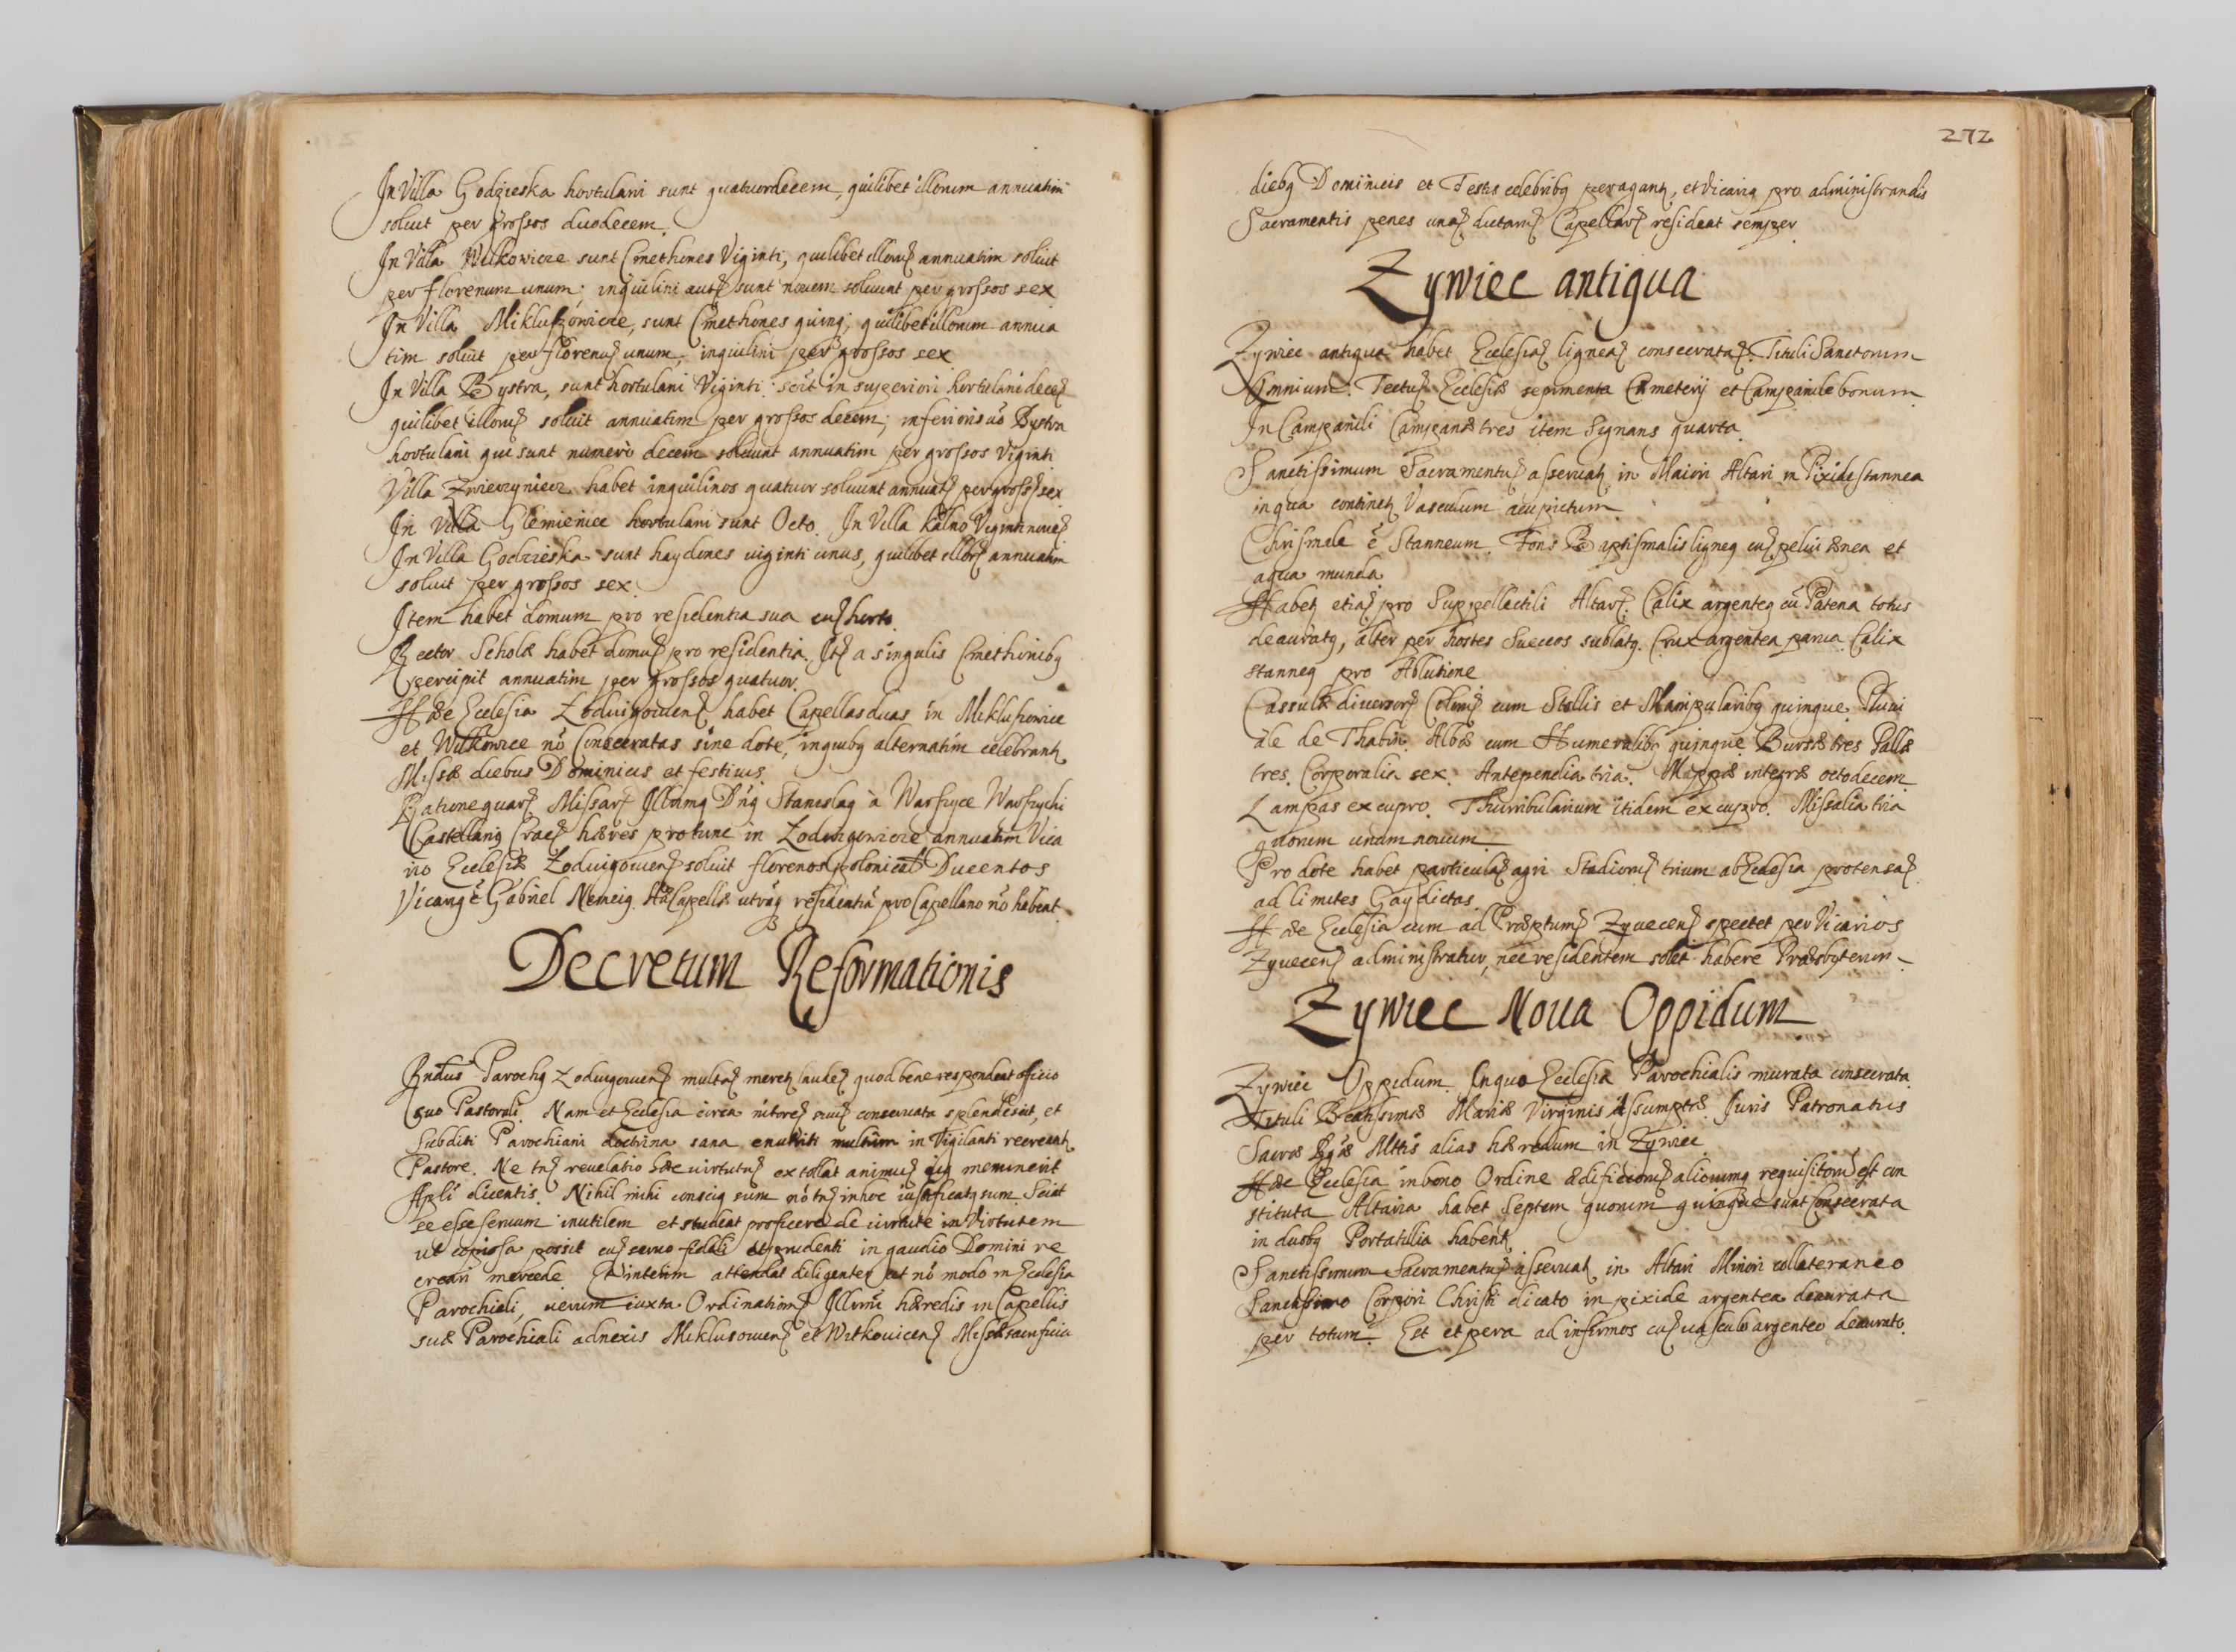 In Villa Godzieska hortulani sunt quatuordecem, quilibet illorum annuatim
soluit per grossos duodecem.
In Villa Wilkowicze sunt Cmethones Viginti, quilibet illoruꝫ annuatim soluit
per florenum unum; inquilini autꝫ sunt nouem soluunt per grossos sex
In Villa Mikluszowicze, sunt Cmethones quinqꝫ; quilibet illorum annua
tim soluit per florenuꝫ unum; inquilini per grossos sex
In Villa Bystra, sunt hortulani Viginti: scit in superiori hortulani deceꝫ
quilibet illoruꝫ soluit annuatim per grossos decem; inferioris uo Bystra
hortulani qui sunt numero decem soluunt annuatim per grossos Viginti
Villa Zwierzyniecz habet inquilinos quatuor soluunt annuatꝫ per grossꝫ sex
In Villa Glemieniec hortulani sunt Octo. In Villa Kalno Viginti noueꝫ
In Villa Godzieska sunt haydones uiginti unus, quilibet illorꝫ annuatim
soluit per grossos sex.
Item habet domum pro residentia sua cuꝫ horto.
Rector Scholæ habet domuꝫ pro residentia. Itꝫ a singulis Cmethonibꝫ
percipit annuatim per grossos quatuor.
Hæc Ecclesia Loduigouienꝫ habet Capellas duas in Mikluszowice
et Wilkowice nō Consecratas sine dote, in quibꝫ alternatim celebrantꝫ
Missæ diebus Dominicis et festiuis.
Ratione quarꝫ Missarꝫ Illrmꝯ Dnꝯ Stanislaꝯ à Warszyce Warszycki
Castellanꝯ Cracꝫ hæres pro tunc in Lodwigowicze annuatim Vica
rio Ecclesiæ Lodwigouienꝫ soluit florenos polonical Ducentos
Vicariꝯ ē Gabriel Nemeiꝯ. Ad Capellæ utrāqꝫ residentiā pro Capellano nō habent.
Decretum Reformationis
Rndus Parochꝯ Lodwigouienꝫ multaꝫ meretꝫ laudeꝫ quod bene respondeat officio
suo Pastorali. Nam et Ecclesia circa nitoreꝫ suuꝫ conseruata splendescit, et
Subditi Parochiani doctrina sana enutriti multum in Vigilanti recreantꝫ
Pastore. Ne tnꝫ reuelatio hæc uirtutuꝫ extollat animuꝫ eiꝯ meminerit
Apli dicentis. Nihil mihi consciꝯ sum nō tnꝫ in hoc iustificatꝯ sum. Sciat
se esse seruum inutilem et studeat proficere de uirtute in Virtutem
ut copiosa possit cuꝫ seruo fideli et prudenti in gaudio Domini re
creari mercede. Et interim attendat diligenter ut nō modo in Ecclesia
Parochiali, uerum iuxta Ordinationeꝫ Illrmi hæredis in Capellis
suæ Parochiali adnexis Miklusouienꝫ et Witkouicenꝫ Missæ sacrificia
272
diebꝯ Dominicis et Festis celebribꝯ peragantꝫ, et Vicariꝯ pro administrandis
Sacramentis penes unaꝫ dictaruꝫ Capellarꝫ resideat semper
Zywiec antiqua
Zywiec antiqua habet Ecclesiaꝫ ligneaꝫ consecrataꝫ. Tituli Sanctorum
Omnium. Tectuꝫ Ecclesiæ sepimenta Cæmeterij et Campanile bonum
In Campanili Campanæ tres item Signans quarta.
Sanctissimum Sacramentuꝫ asseruatꝫ in Maiori Altari in Pixide stannea
in qua continetꝫ Vasculum acupictum.
Chrismale ē Stanneum. Fons Baptismalis ligneꝯ cuꝫ pelui ænea et
aqua munda.
Habetꝫ etiaꝫ pro Suppellectili Altarꝫ. Calix argenteꝯ cū Patena totus
deauratꝯ, alter per hostes Suecos sublatꝯ. Crux argentea parua. Calix
stanneꝯ pro Ablutione
Cassulæ diuersorꝫ Coloruꝫ cum Stollis et Manipularibꝯ quinque. Pluui
ale de Thabin. Albæ cum Humeralibꝯ quinque. Bursæ tres Pallæ
tres. Corporalia sex. Antependia tria. Mappæ integræ octodecem
Lampas ex cupro. Thurribularium itidem ex cupro. Missalia tria
quorum unum nouum
Pro dote habet particulaꝫ agri Stadioruꝫ trium ab Ecclesia protensaꝫ
ad limites Gaydictas.
Hæc Ecclesia cum ad Præptumꝫ Zyuecenꝫ spectet per Vicarios
Zyuecenꝫ administratur, nec residentem solet habere Præsbyterum
Zywiec Noua Oppidum
Zywiec Oppidum. In quo Ecclesia Parochialis murata consecrata.
Tituli Beatissimæ Mariæ Virginis Assumptæ. Juris Patronatus
Sacræ Rgiæ Mttis alias hæredum in Zywiec
Hæc Ecclesia in bono Ordine ædificioruꝫ aliorumqꝫ requisitoruꝫ est con
stituta Altaria habet Septem quorum quinque sunt Consecrata
in duobꝯ Portatilia habentꝫ
Sanctissimum Sacramentuꝫ asseruatꝫ in Altari Minori collateraneo
Sanctissimo Corpori Christi dicato in pixide argentea deaurata
per totum. Est et pera ad infirmos cuꝫ uasculo argenteo deaurato.